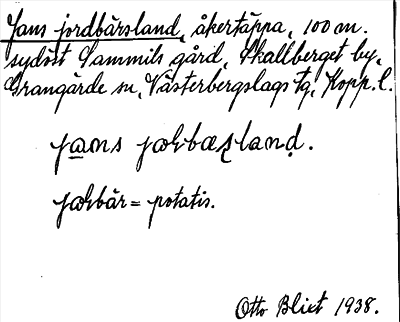 Jans jordbärsland, åkertäppa, 100 m.
sydöst Sammils gård, Skallberget by,
Grangärde sn, Västerbergslags tg, Kopp. l.
jans jəkbæʂland.
jəkbär = potatis.
Otto Blixt 1938.